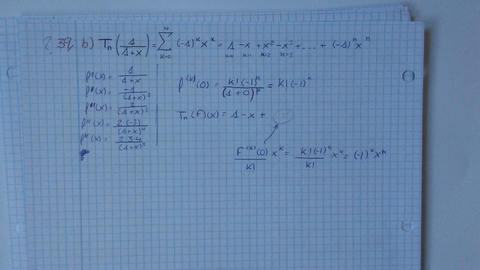 2.39 b) Tn(1/(1+x)) = Σ (-1)^k x^k = 1 - x + x² - x³ + ... + (-1)^n x^n
k=0 k=0 k=1 k=2 k=3
f(x) = 1/(1+x)
f'(x) = -1/(1+x)²
f''(x) = 2/(1+x)³
f'''(x) = 2·(-3)/(1+x)⁴
f(x) = 2·3·4/(1+x)⁵
f^(k)(0) = k!(-1)^k/(1+0)^k = k!(-1)^k
Tn(f)(x) = 1 - x +
f^(k)(0)/k! x^k = k!(-1)^k/k! x^k = (-1)^k x^k